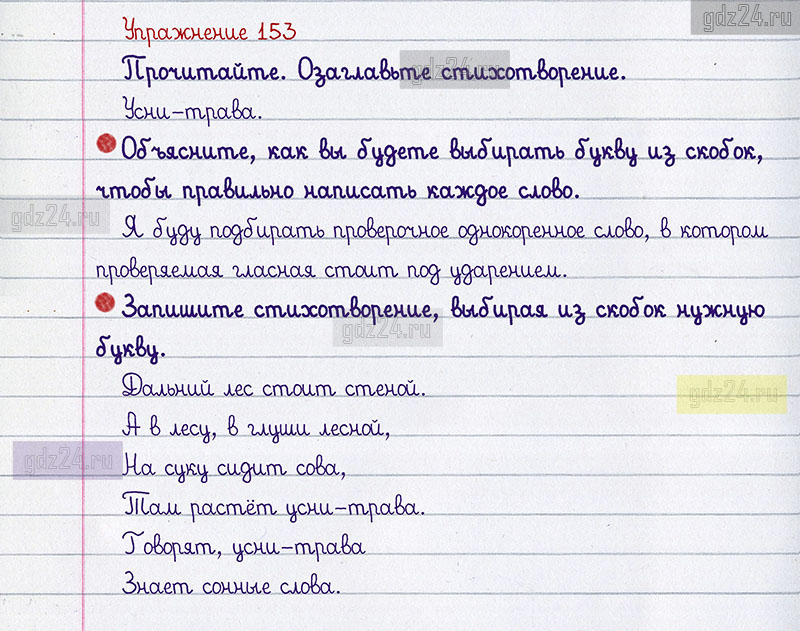 gdz24.ru
Упражнение 153
Прочитайте. Озаглавьте стихотворение.
gdz24.ru
Усни-трава.
Объясните, как вы будете выбирать букву из скобок,
чтобы правильно написать каждое слово.
gdz24.ru
Я буду подбирать проверочное однокоренное слово, в котором
проверяемая гласная стоит под ударением.
Запишите стихотворение, выбирая из скобок нужную
gdz24.ru
букву.
Дальний лес стоит стеной.
gdz24.ru
А в лесу, в глуши лесной,
gdz24.ru
На суку сидит сова,
Там растёт усни-трава.
Говорят, усни-трава
Знает сонные слова.